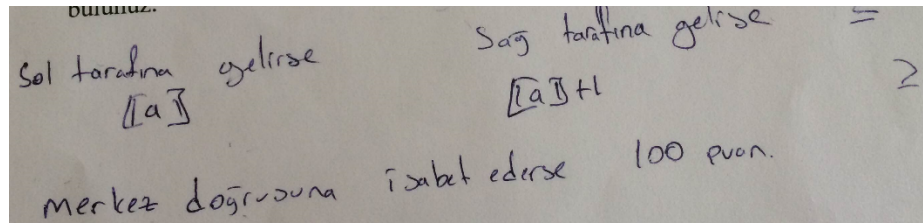 bulunuz.
Sol tarafına gelirse
Sağ tarafına gelirse =
⟦a⟧
⟦a⟧+1
2
merkez doğrusuna isabet ederse 100 puan.